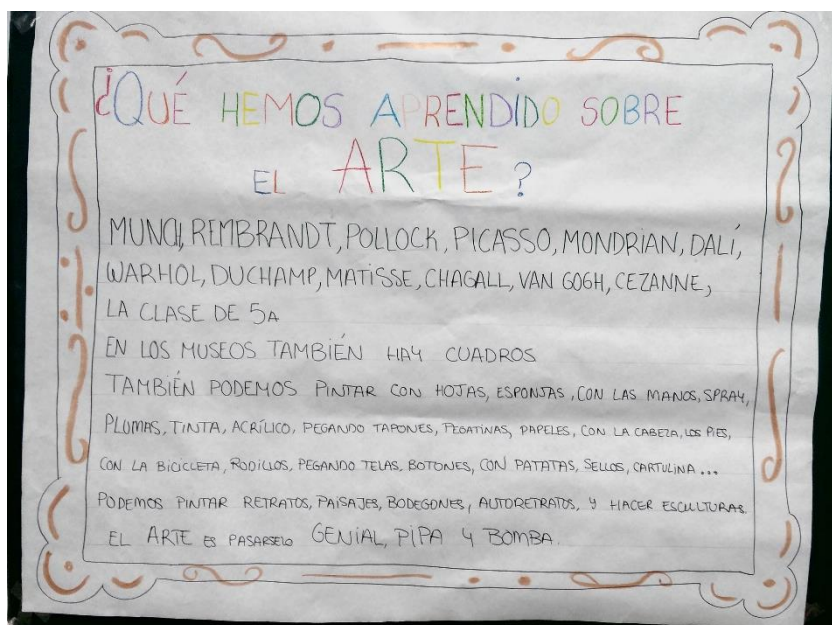 ¿QUÉ HEMOS APRENDIDO SOBRE
EL ARTE?
MUNCH, REMBRANDT, POLLOCK, PICASSO, MONDRIAN, DALÍ,
WARHOL, DUCHAMP, MATISSE, CHAGALL, VAN GOGH, CEZANNE,
LA CLASE DE 5A
EN LOS MUSEOS TAMBIÉN HAY CUADROS
TAMBIÉN PODEMOS PINTAR CON HOJAS, ESPONJAS, CON LAS MANOS, SPRAY,
PLUMAS, TINTA, ACRÍLICO, PEGANDO TAPONES, PEGATINAS, PAPELES, CON LA CABEZA, LOS PIES,
CON LA BICICLETA, RODILLOS, PEGANDO TELAS, BOTONES, CON PATATAS, SELLOS, CARTULINA...
PODEMOS PINTAR RETRATOS, PAISAJES, BODEGONES, AUTORETRATOS, Y HACER ESCULTURAS.
EL ARTE ES PASARSELO GENIAL, PIPA Y BOMBA.